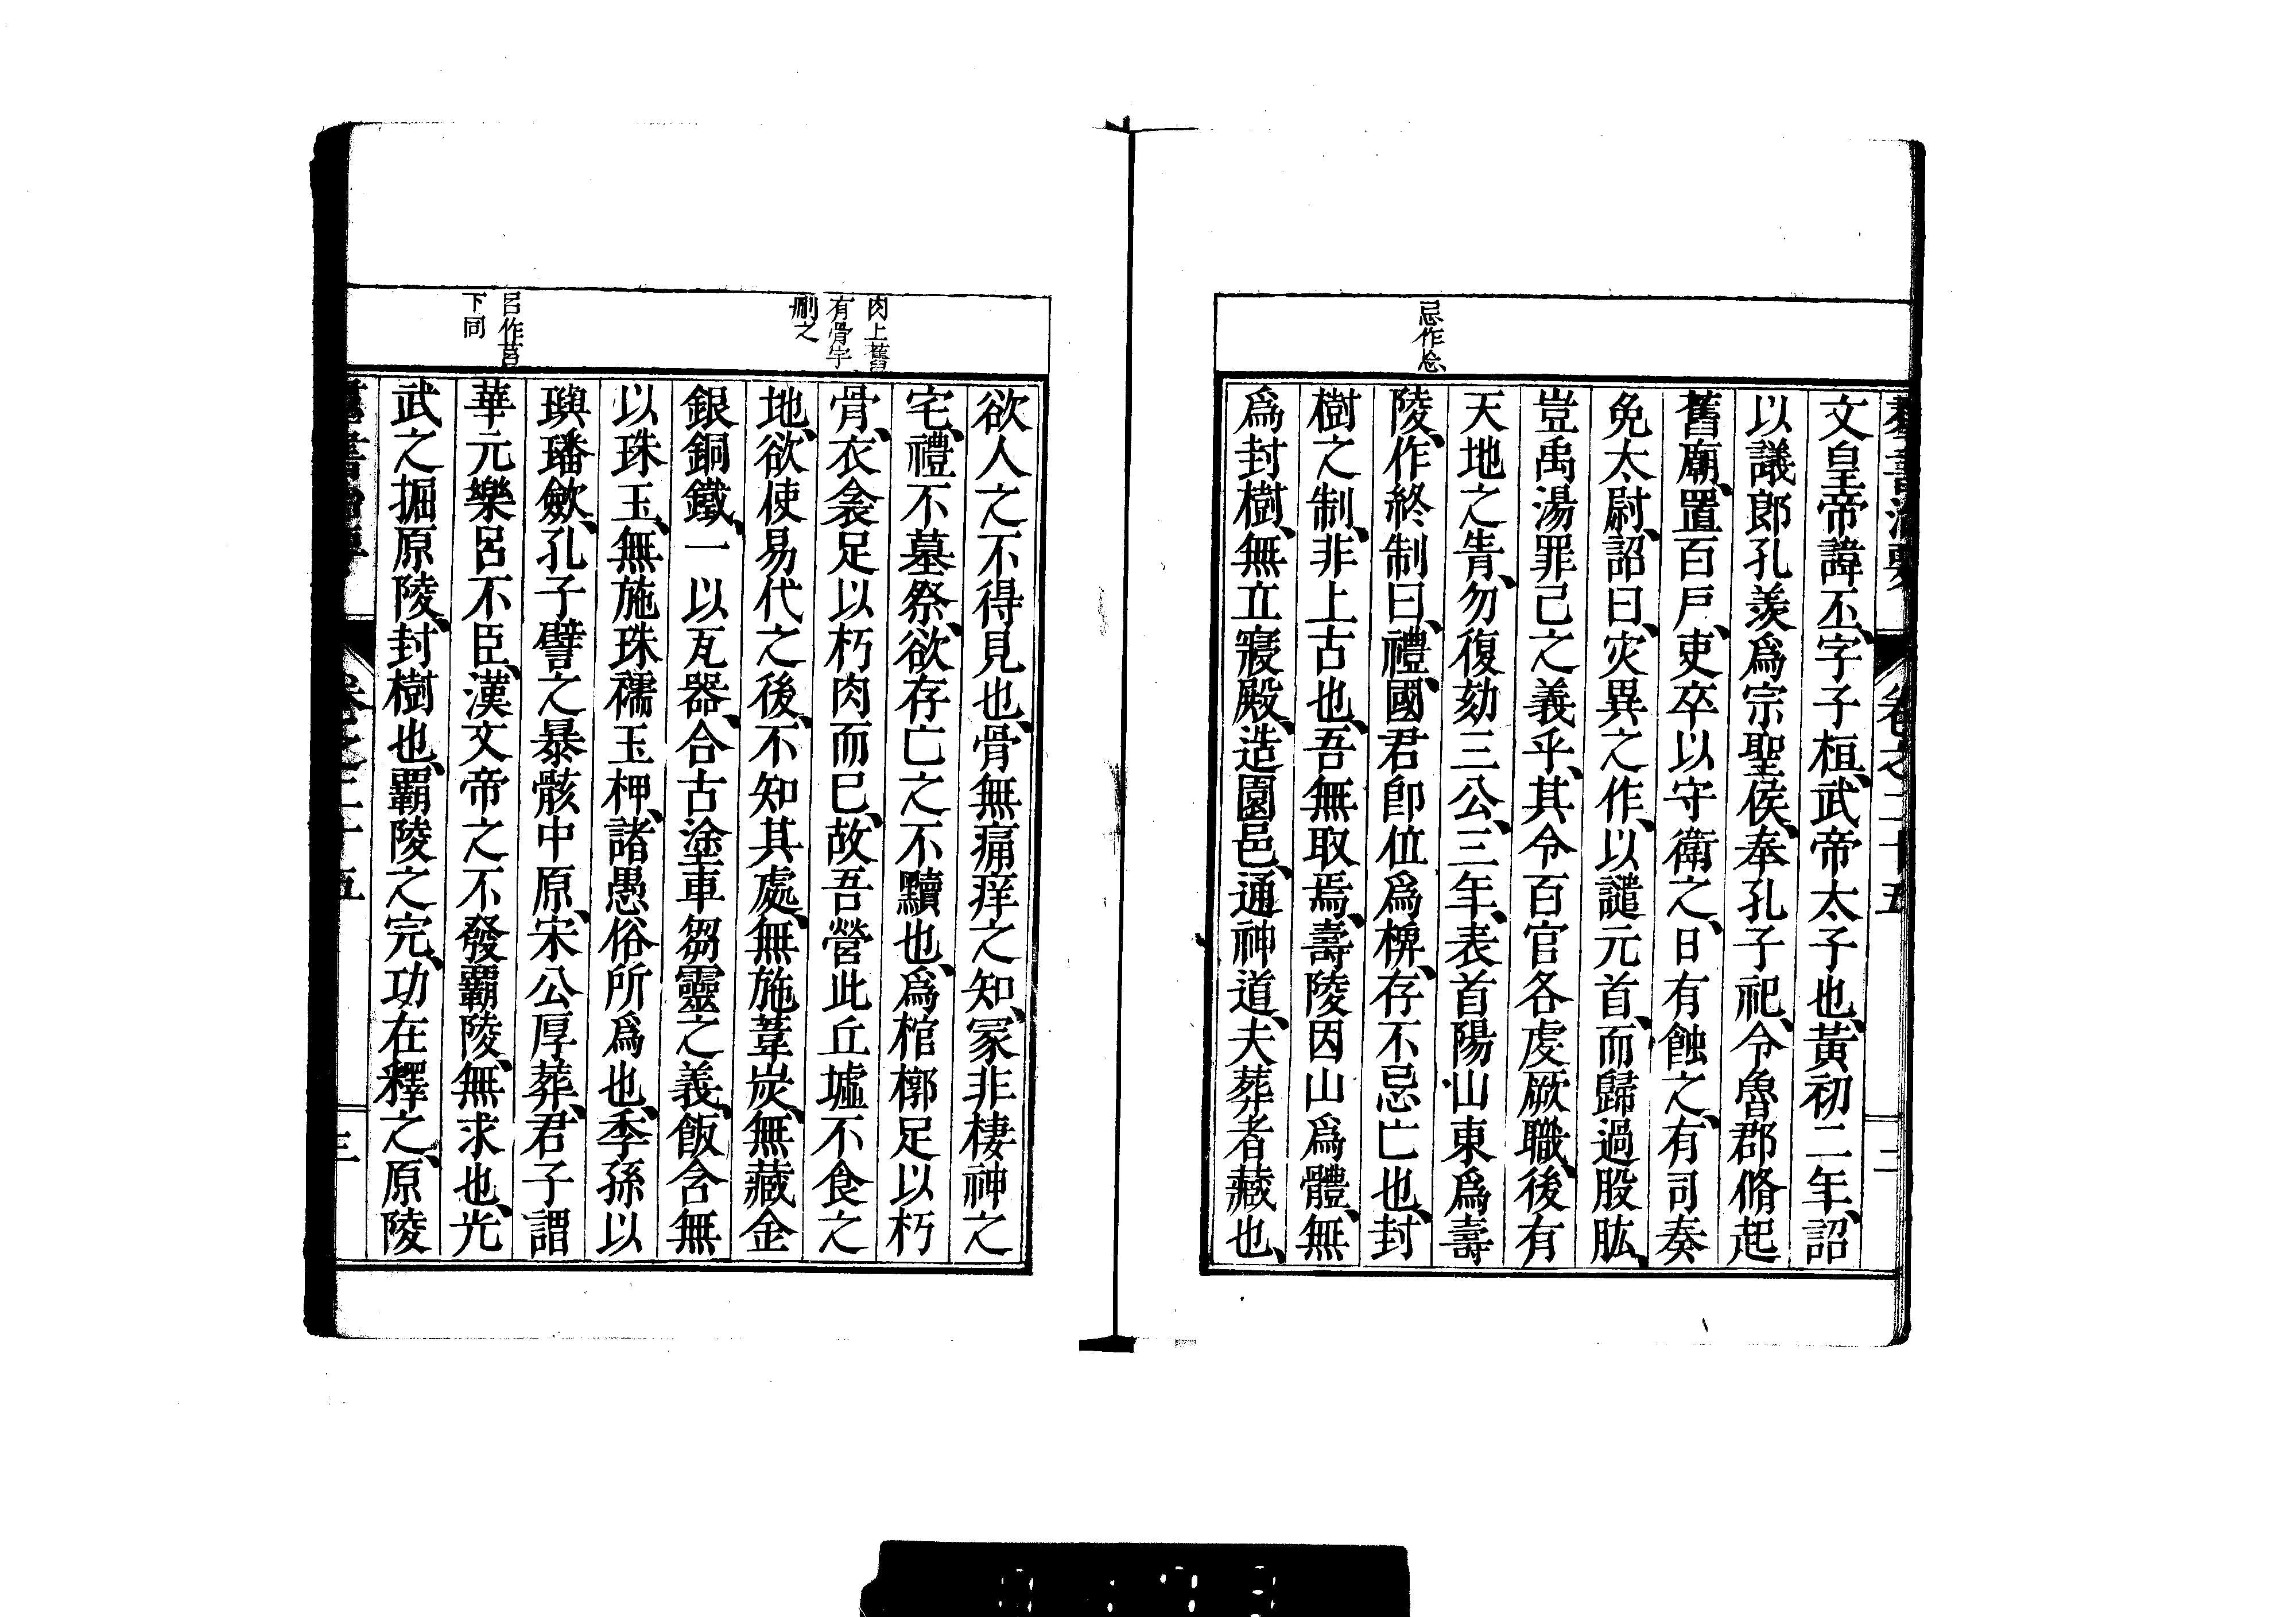 群書治要 卷之二十五 二
忌作忘
文皇帝諱丕、字子桓、武帝太子也、黃初二年、詔
以議郎孔羨爲宗聖侯、奉孔子祀、令魯郡脩起
舊廟、置百戶、吏卒以守衛之、日有蝕之、有司奏
免太尉、詔曰、灾異之作、以譴元首、而歸過股肱、
豈禹湯罪己之義乎、其令百官各虔厥職、後有
天地之眚、勿復劾三公、三年、表首陽山東爲壽
陵、作終制曰、禮、國君卽位爲椑、存不忌亡也、封
樹之制、非上古也、吾無取焉、壽陵因山爲體、無
爲封樹、無立寢殿、造園邑、通神道、夫葬者藏也、
肉上舊
有骨字
刪之
呂作莒
下同
欲人之不得見也、骨無痛痒之知、冢非棲神之
宅、禮不墓祭、欲存亡之不黷也、爲棺槨足以朽
骨、衣衾足以朽肉而已、故吾營此丘墟不食之
地、欲使易代之後、不知其處、無施葦炭、無藏金
銀銅鐵、一以瓦器、合古塗車芻靈之義、飯含無
以珠玉、無施珠襦玉柙、諸愚俗所爲也、季孫以
璵璠斂、孔子譬之暴骸中原、宋公厚葬、君子謂
華元樂呂不臣、漢文帝之不發覇陵、無求也、光
武之掘原陵、封樹也、覇陵之完、功在釋之、原陵
群書治要 卷之二十五 三